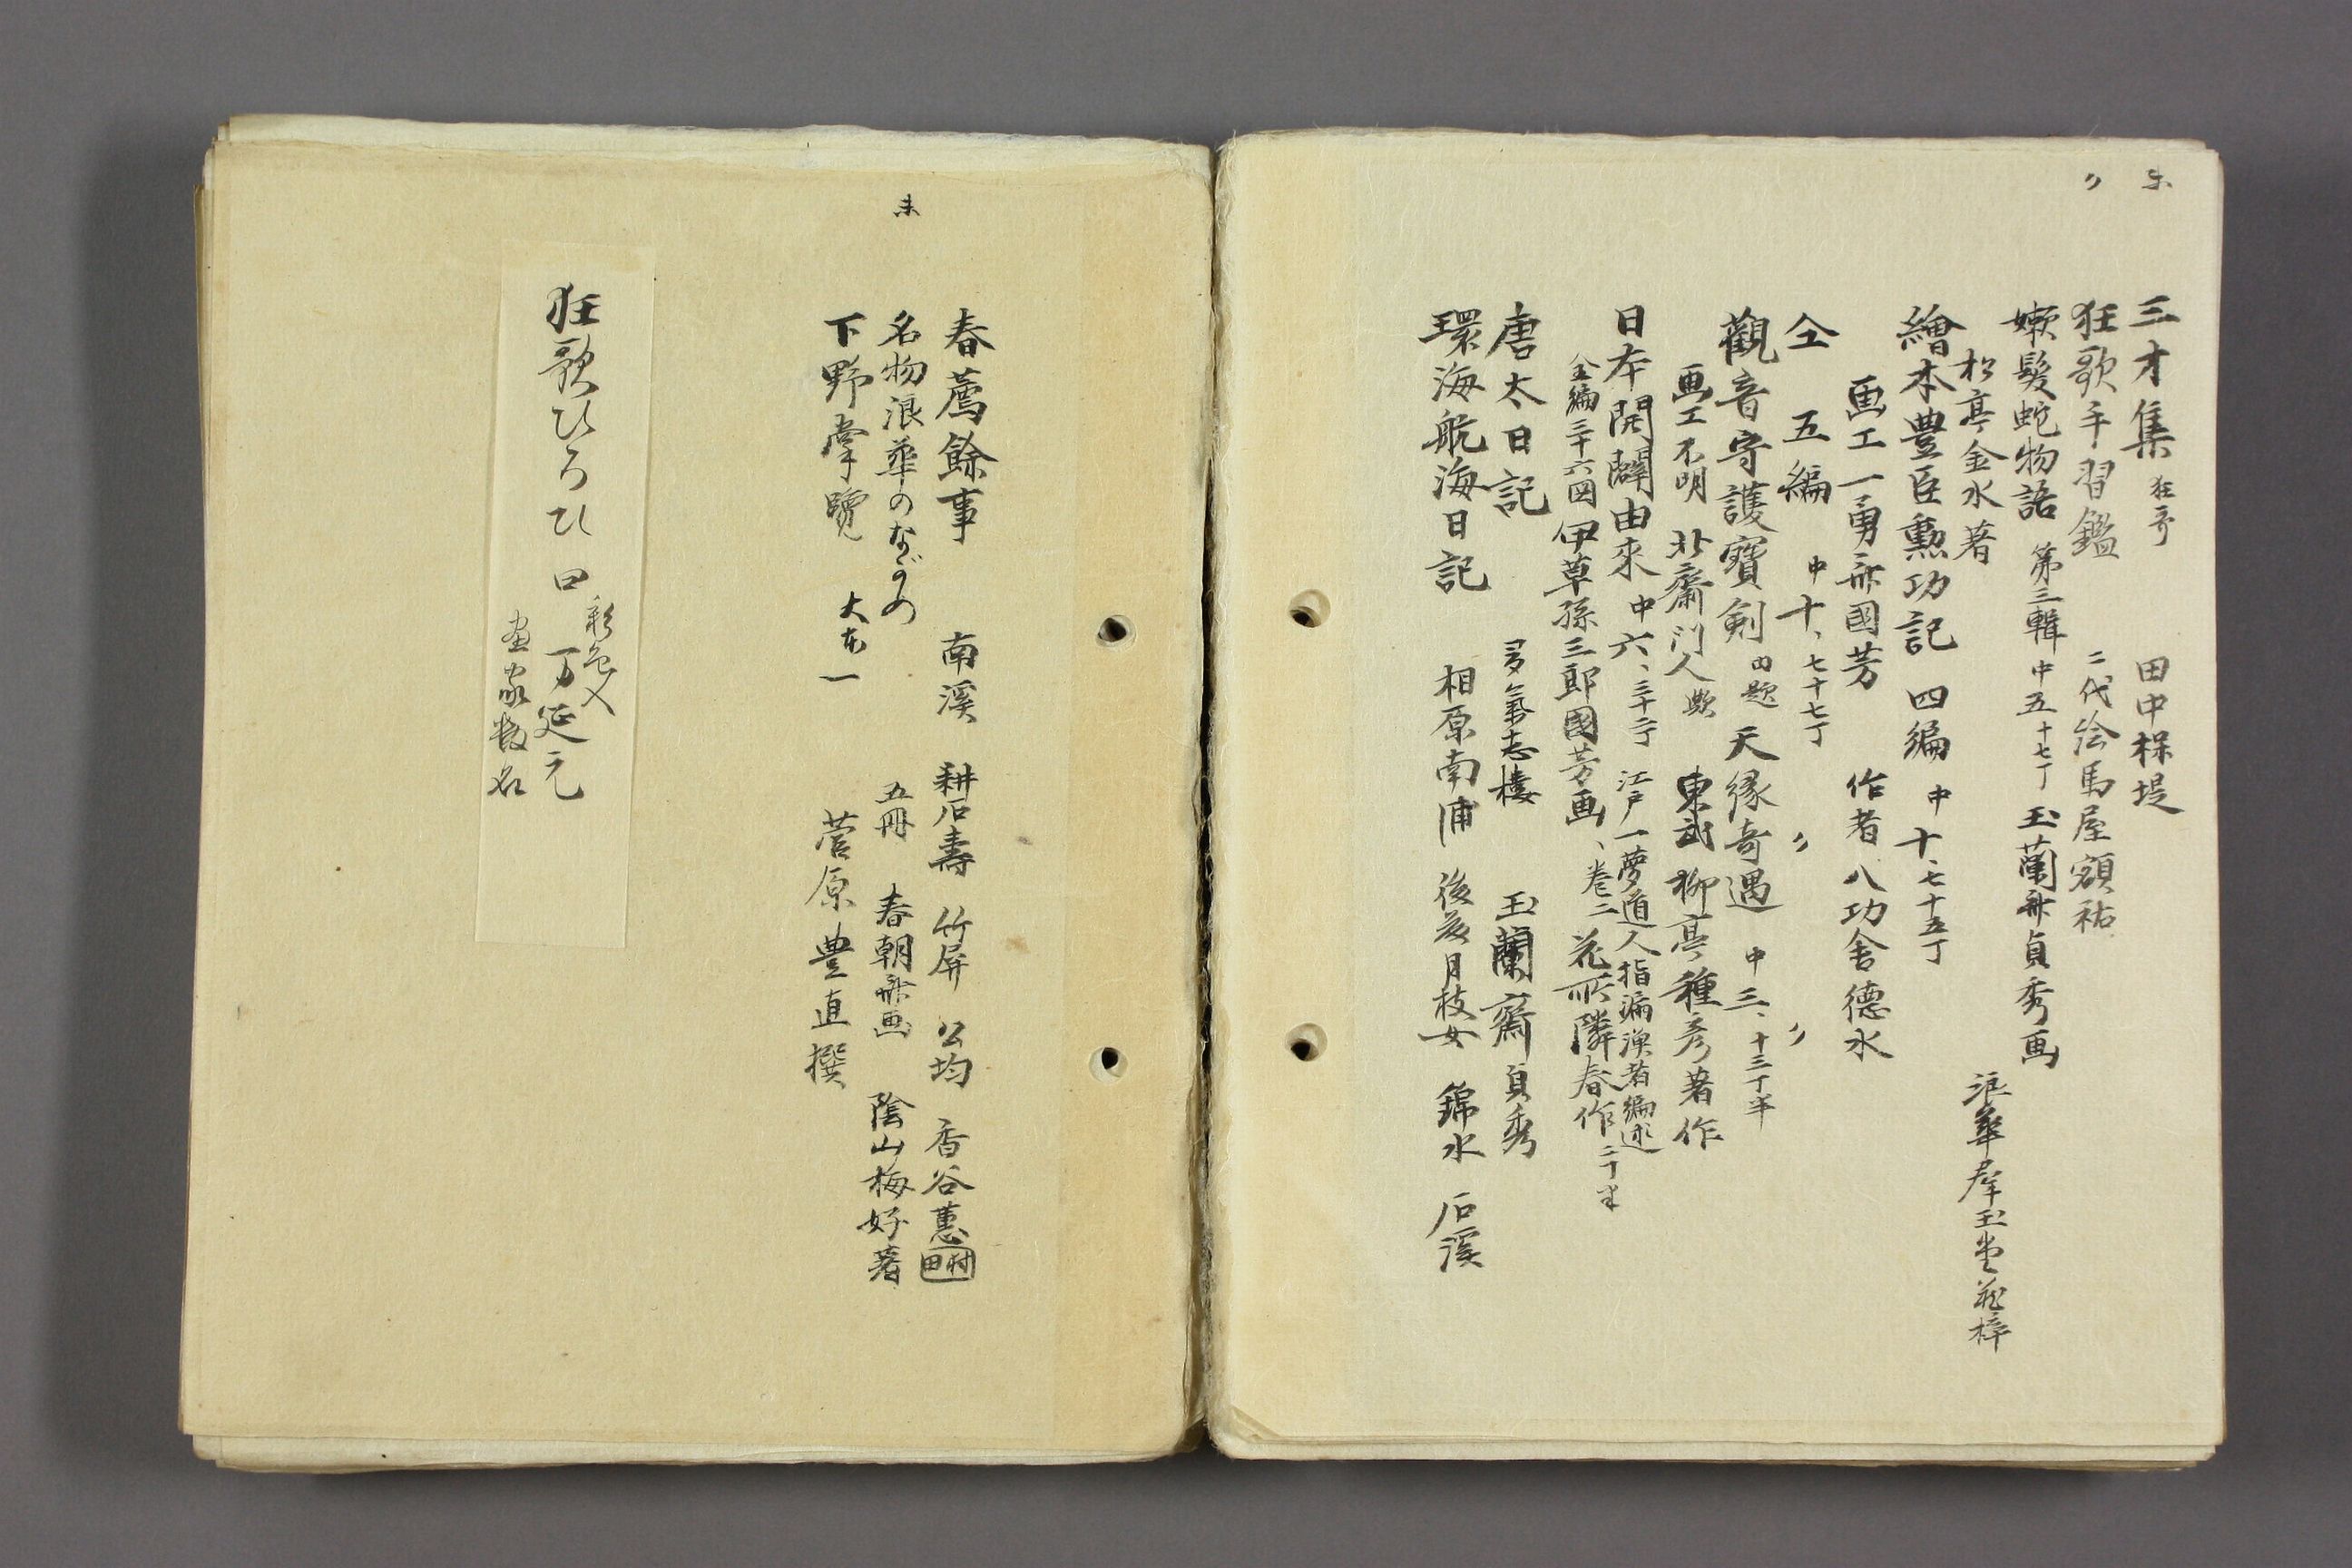 未 三才集 狂哥 田中楳堤
〃 狂歌手習鑑 二代絵馬屋額祐
嫩髮蛇物語 第三輯 中五 十七丁 玉蘭斎貞秀画
松亭金水著 浪華群玉堂藏梓
繪本豊臣勲功記 四編 中十、七十五丁
画工一勇斎國芳 作者八功舎德水
仝 五編 中十、七十七丁 〃 〃
觀音守護寶剣 内題 天縁奇遇 中三、十三丁半
画工不明 北齋門人歟 東武柳亭種彦著作
日本開闢由来 中六、三十丁 江戸一夢道人指漏漁者編述
全編三十六図 伊草孫三郎國芳画、巻二 花所隣春作 二十半
唐太日記 多氣志樓 玉蘭齋貞秀
環海航海日記 相原南浦 後茂月枝女 錦水 石溪
未 春薦餘事 南溪 耕石壽 竹屏 公均 香谷蕙 村田
名物浪華のながめ 五冊 春朝斎画 陰山梅好著
下野掌覽 大本一 菅原豊直撰
狂歌ひろひ 口彩色入 万延元
画家数名